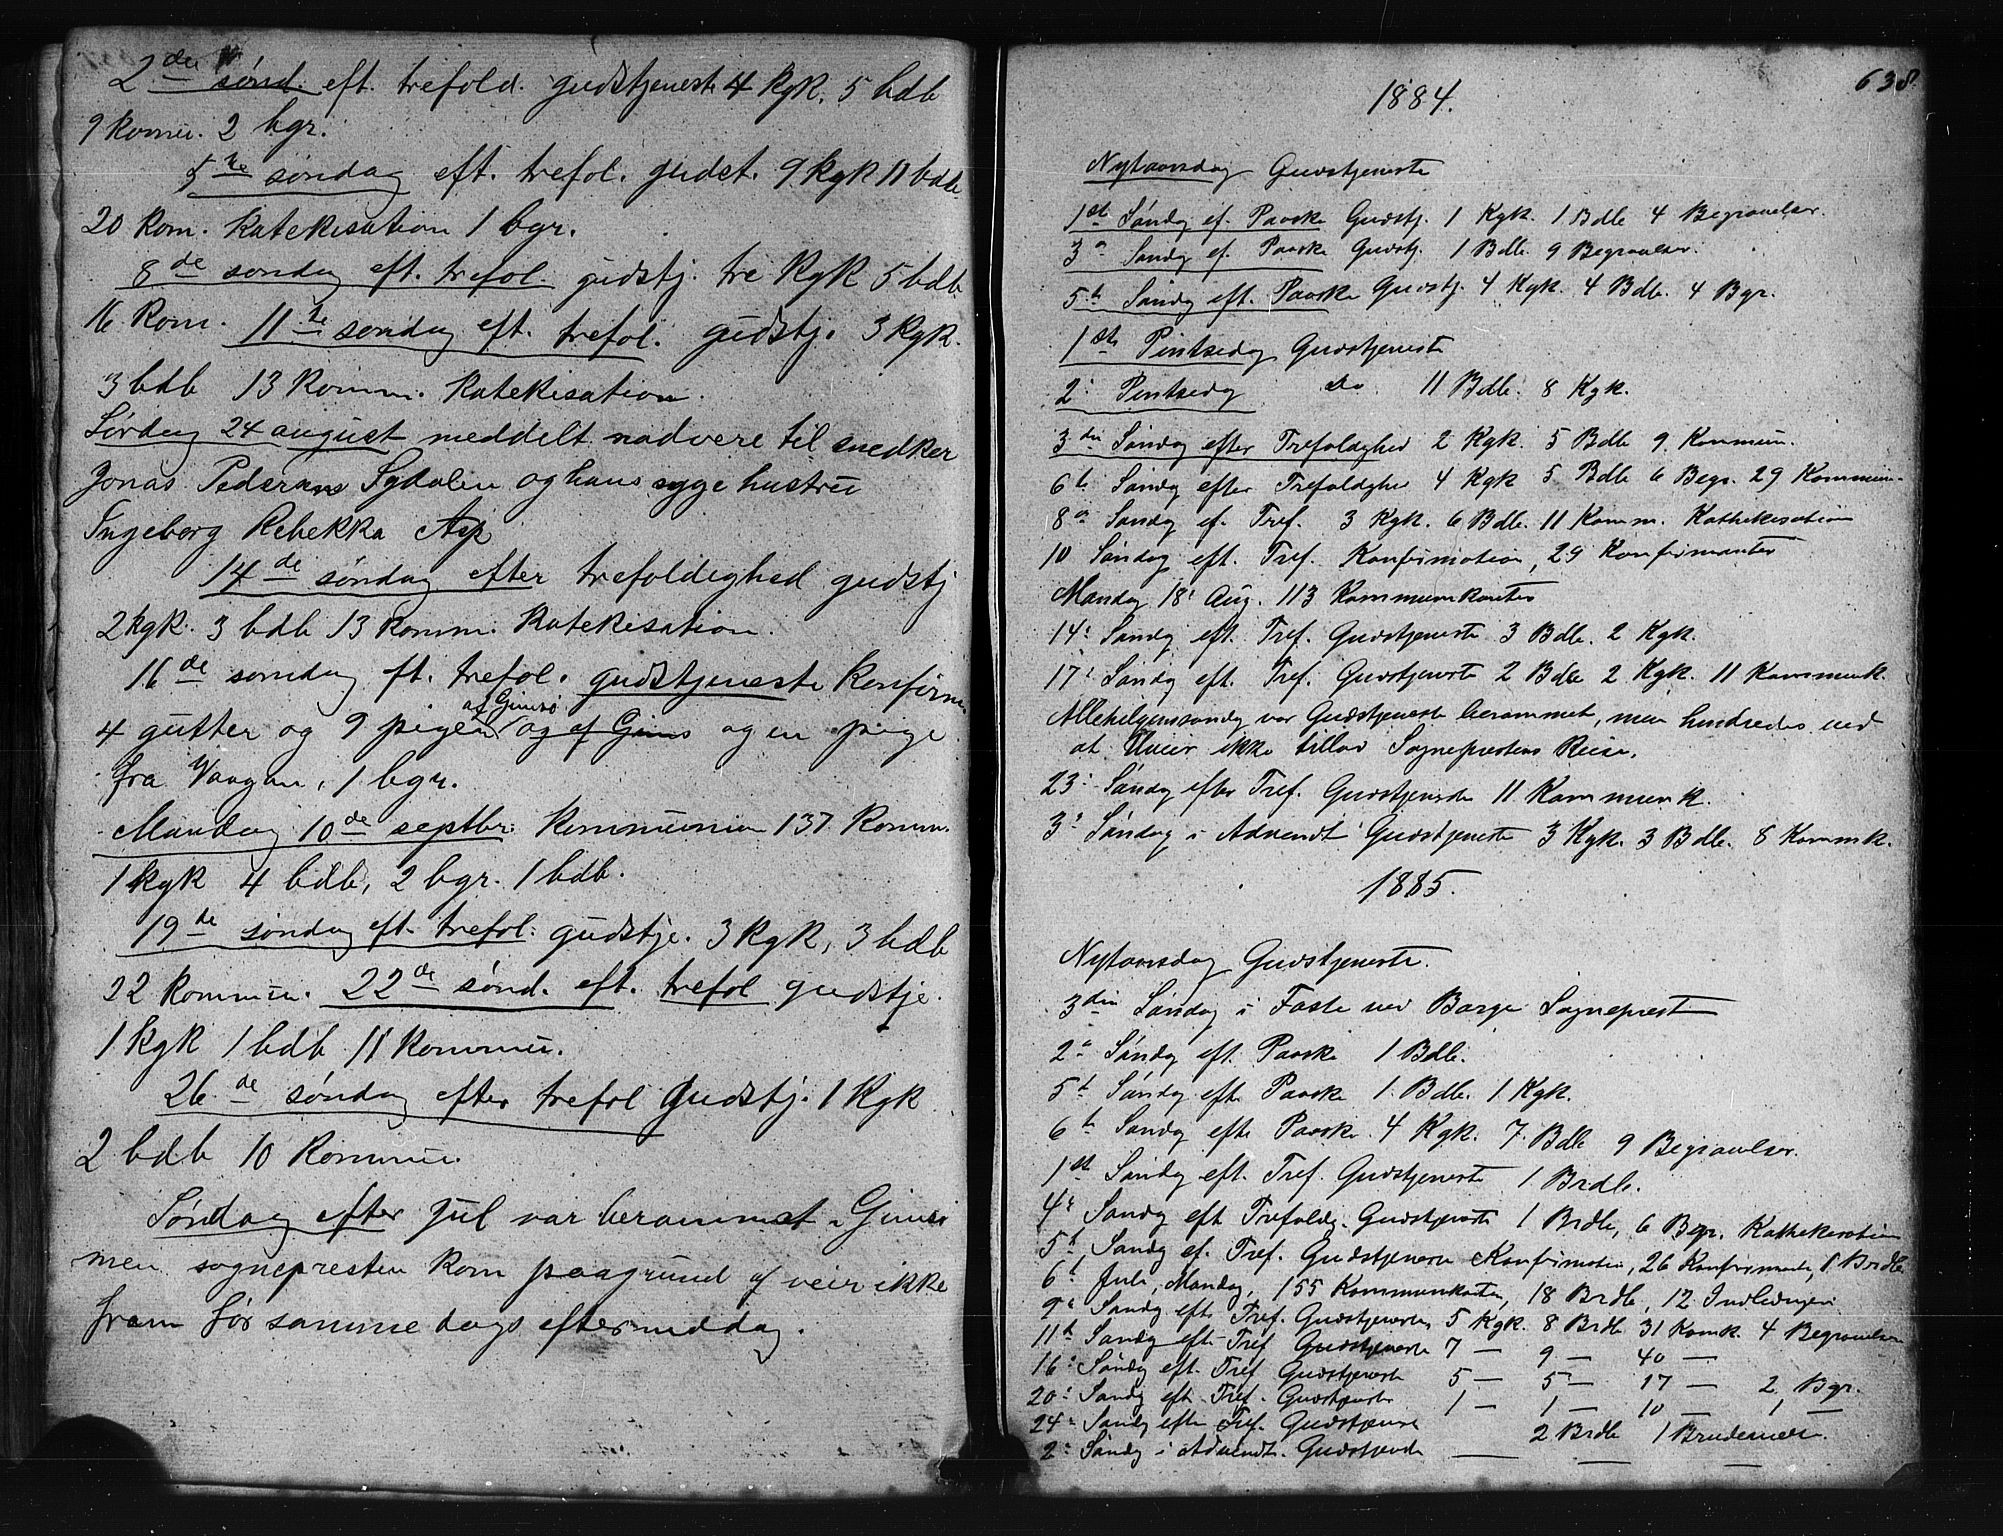 2den sønd. eft. trefold. gudstjeneste 4 kgk. 5 bdb
9 komu. 2 bgr.
5te søndag eft. trefol. gudst. 9 kgk 11 bdb
20 kom. katekisation 1 bgr.
8de søndag eft. trefol. gudstj. tre kgk 5 bdb
16 kom. 11te søndag eft. trefol. gudstj. 3 kgk.
3 bdb 13 komm. katekisation.
Lørdag 24 august meddelt nadvere til snedker
Jonas Pedersen Sydalen og hans syge hustru
Ingeborg Rebekka Asp
14de søndag efter trefoldighed gudstj
2 kgk. 3 bdb 13 komm. katekisation.
16de søndag eft. trefol. gudstjeneste konfirm.
4 gutter og 9 piger af Gimsø og af Gims og en pige
fra Vaagan, 1 bgr.
Mandag 10de septbr. kommunion 137 komm.
1 kgk 4 bdb, 2 bgr. 1 bdb.
19de søndag eft. trefol. gudstje. 3 kgk, 3 bdb
22 kommun. 22de sønd. eft. trefol gudstje.
1 kgk 1 bdb 11 kommu.
26de søndag efter trefol gudstj. 1 kgk
2 bdb 10 kommu.
Søndag efter jul var berammet i Gimsø
men sognepresten kom paagrund af veir ikke
fram før samme dags eftermiddag.
638.
1884.
Nytaarsdag Gudstjeneste
1ste Søndag ef. Paaske Gudstj. 1 Kgk. 1 Bdb 4 Begravelser.
3die Søndag ef. Paaske Gudstj. 1 Bdb. 9 Begravelser.
5te Søndag eft. Paaske Gudstj. 4 Kgk. 4 Bdb. 4 Bgr.
1ste Pintsedag Gudstjeneste
2: Pintsedag do 11 Bdb. 8 Kgk.
3die Søndag efter Trefoldighed 2 Kgk. 5 Bdb 9 Kommun.
6te Søndag efter Trefoldighed 4 Kgk 5 Bdb 6 Begr. 29 Kommun.
8de Søndag ef. Tref. 3 Kgk. 6 Bdb. 11 Komm. Kathekisation
10 Søndag eft. Tref. Konfirmation, 29 Konfirmanter
Mandag 18: Aug. 113 Kommunikanter
14: Søndag eft. Tref. Gudstjeneste 3 Bdb. 2 Kgk.
17: Søndag eft. Tref. Gudstjeneste 2 Bdb 2 Kgk. 11 Kommunk.
Allehelgenssøndag var Gudstjeneste berammet, men hindredes ved
at Veier ikke tillod Sogneprestens Reise.
23: Søndag efter Tref. Gudstjeneste 11 Kommunk.
3: Søndag i Advendt Gudstjeneste 3 Kgk. 3 Bdb. 8 Kommk.
1885.
Nytaarsdag Gudstjeneste.
3die Søndag i Faste ved Borge Sogneprest
2: Søndag eft. Paaske 1 Bdb.
5te Søndag efte Paaske 1 Bdb. 1 Kgk.
6te Søndag efte Paaske 4 Kgk. 7 Bdb 9 Begravelser.
1ste Søndag eft. Tref. Gudstjeneste 1 Brdb.
4: Søndag eft Trefoldg. Gudstjeneste 1 Brdb, 6 Begr. Kathekesation
5te Søndag ef. Tref. Gudstjeneste Konfirmation, 26 Konfirmanter, 1 Brdb
6te Juli, Mandag, 155 Kommunikanter, 18 Brdb, 12 Indledninger
9: Søndag eft. Tref. Gudstjeneste 5 Kgk. 8 Brdb 31 Komk. 4 Begravelser
11te Søndag eft Tref Gudstjeneste 7 — 9 — 40 —
16: Søndag eft. Tref Gudstjeneste 5 — 5 — 17 — 2 Bgr.
20: Søndag eft. Tref. Gudstjeneste 1 — 1 — 10 — 1 —
24: Søndag efter Tref. Gudstjeneste 2 Brdb 1 Brudevielse.
2: Søndag i Advendt. Gudstjeneste — — —